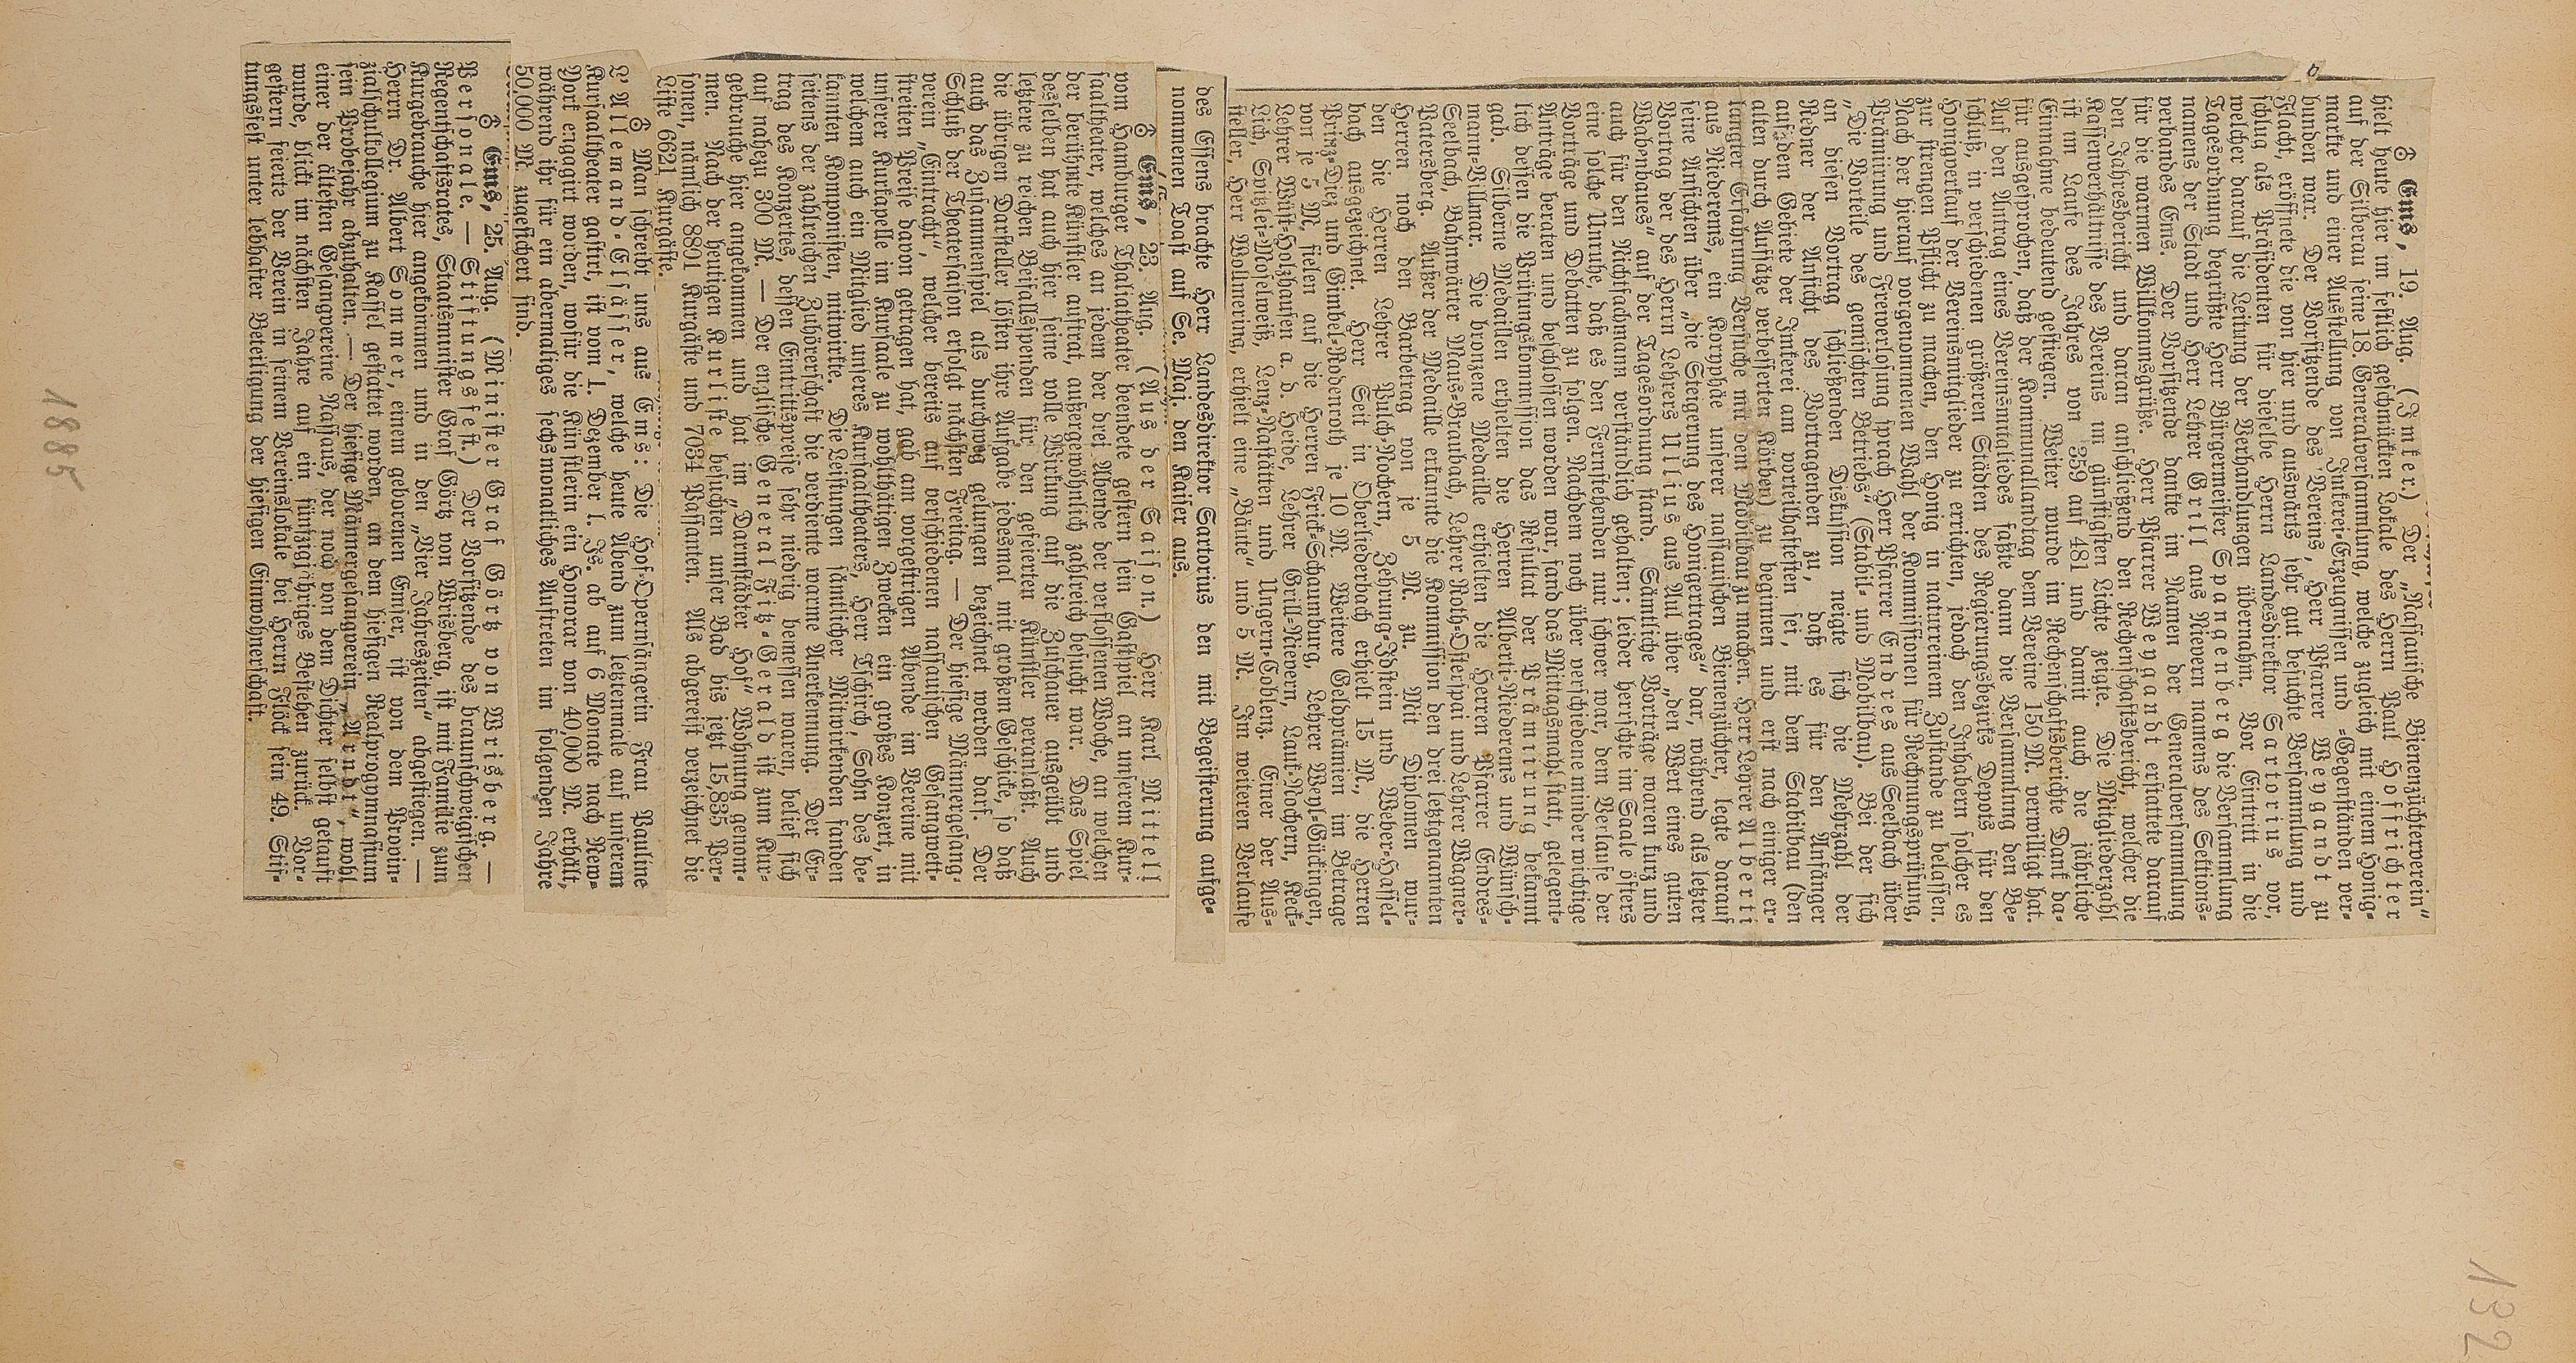 ♁ Ems, 19. Aug. (Imker.) Der „Nassauische Bienenzüchterverein“
hielt heute hier im festlich geschmückten Lokale des Herrn Paul Hoffrichter
auf der Silberau seine 18. Generalversammlung, welche zugleich mit einem Honig-
markte und einer Ausstellung von Imkerei-Erzeugnissen und -Gegenständen ver-
bunden war. Der Vorsitzende des Vereins, Herr Pfarrer Weygandt zu
Flacht, eröffnete die von hier und auswärts sehr gut besuchte Versammlung und
schlug als Präsidenten für dieselbe Herrn Landesdirektor Sartorius vor,
welcher darauf die Leitung der Verhandlungen übernahm. Vor Eintritt in die
Tagesordnung begrüßte Herr Bürgermeister Spangenberg die Versammlung
namens der Stadt und Herr Lehrer Grill aus Nievern namens des Sektions-
verbandes Ems. Der Vorsitzende dankte im Namen der Generalversammlung
für die warmen Willkommsgrüße. Herr Pfarrer Weygandt erstattete darauf
den Jahresbericht und daran anschließend den Rechenschaftsbericht, welcher die
Kassenverhältnisse des Vereins im günstigsten Lichte zeigte. Die Mitgliederzahl
ist im Laufe des Jahres von 359 auf 481 und damit auch die jährliche
Einnahme bedeutend gestiegen. Weiter wurde im Rechenschaftsberichte Dank da-
für ausgesprochen, daß der Kommunallandtag dem Vereine 150 M. verwilligt hat.
Auf den Antrag eines Vereinsmitgliedes faßte dann die Versammlung den Be-
schluß, in verschiedenen größeren Städten des Regierungsbezirks Depots für den
Honigverkauf der Vereinsmitglieder zu errichten, jedoch den Inhabern solcher es
zur strengen Pflicht zu machen, den Honig in naturreinem Zustande zu belassen.
Nach der hierauf vorgenommenen Wahl der Kommissionen für Rechnungsprüfung,
Prämiirung und Freiverlosung sprach Herr Pfarrer Endres aus Seelbach über
„Die Vorteile des gemischten Betriebs“ (Stabil- und Mobilbau). Bei der sich
an diesen Vortrag schließenden Diskussion neigte sich die Mehrzahl der
Redner der Ansicht des Vortragenden zu, daß es für den Anfänger
auf dem Gebiete der Imkerei am vorteilhaftesten sei, mit dem Stabilbau (den
alten durch Aufsätze verbesserten Körben) zu beginnen und erst nach einiger er-
langter Erfahrung Versuche mit dem Mobilbau zu machen. Herr Lehrer Alberti
aus Niederems, ein Koryphäe unserer nassauischen Bienenzüchter, legte darauf
seine Ansichten über „die Steigerung des Honigertrages“ dar, während als letzter
Vortrag der des Herrn Lehrers Ulius aus Aul über „den Wert eines guten
Wabenbaues“ auf der Tagesordnung stand. Sämtliche Vorträge waren kurz und
auch für den Nichtfachmann verständlich gehalten; leider herrschte im Saale öfters
eine solche Unruhe, daß es den Fernstehenden nur schwer war, dem Verlaufe der
Vorträge und Debatten zu folgen. Nachdem noch über verschiedene minder wichtige
Anträge beraten und beschlossen worden war, fand das Mittagsmahl statt, gelegent-
lich dessen die Prüfungskommission das Resultat der Prämiirung bekannt
gab. Silberne Medaillen erhielten die Herren Alberti-Niederems und Münsch-
mann-Villmar. Die bronzene Medaille erhielten die Herren Pfarrer Endres-
Seelbach, Bahnwärter Maus-Braubach, Lehrer Roth-Osterspai und Lehrer Wagner-
Patersberg. Außer der Medaille erkannte die Kommission den drei letztgenannten
Herren noch den Barbetrag von je 5 M. zu. Mit Diplomen wur-
den die Herren Lehrer Pulch-Nochern, Zehrung-Idstein und Weber-Hassel-
bach ausgezeichnet. Herr Seit in Oberliederbach erhielt 15 M., die Herren
Prinz-Diez und Gimbel-Rodenroth je 10 M. Weitere Geldprämien im Betrage
von je 5 M. fielen auf die Herren Frick-Schaumburg, Lehrer Wey-Gückingen,
Lehrer Wüst-Holzhausen a. d. Heide, Lehrer Grill-Nievern, Lauk-Nochern, Leck-
Lich, Göttler-Moselweiß, Lenz-Nastätten und Ungern-Coblenz. Einer der Aus-
steller, Herr Wollmering, erhielt eine „Bäute“ und 5 M. Im weiteren Verlaufe
des Essens brachte Herr Landesdirektor Sartorius den mit Begeisterung aufge-
nommenen Toast auf Se. Maj. den Kaiser aus.
♁ Ems, 23. Aug. (Aus der Saison.) Herr Karl Mittell
vom Hamburger Thaliatheater beendete gestern sein Gastspiel an unserem Kur-
saaltheater, welches an jedem der drei Abende der verflossenen Woche, an welchen
der berühmte Künstler auftrat, außergewöhnlich zahlreich besucht war. Das Spiel
desselben hat auch hier seine volle Wirkung auf die Zuschauer ausgeübt und
letztere zu reichen Beifallsspenden für den gefeierten Künstler veranlaßt. Auch
die übrigen Darsteller lösten ihre Aufgabe jedesmal mit großem Geschicke, so daß
auch das Zusammenspiel als durchweg gelungen bezeichnet werden darf. Der
Schluß der Theatersaison erfolgt nächsten Freitag. — Der hiesige Männergesang-
verein „Eintracht“, welcher bereits auf verschiedenen nassauischen Gesangwett-
streiten Preise davon getragen hat, gab am vorgestrigen Abende im Vereine mit
unserer Kurkapelle im Kursaale zu wohlthätigen Zwecken ein großes Konzert, in
welchem auch ein Mitglied unseres Kursaaltheaters, Herr Tschirch, Sohn des be-
kannten Komponisten, mitwirkte. Die Leistungen sämtlicher Mitwirkenden fanden
seitens der zahlreichen Zuhörerschaft die verdiente warme Anerkennung. Der Er-
trag des Konzertes, dessen Eintrittspreise sehr niedrig bemessen waren, belief sich
auf nahezu 300 M. — Der englische General Fitz-Gerald ist zum Kur-
gebrauche hier angekommen und hat im „Darmstädter Hof“ Wohnung genom-
men. Nach der heutigen Kurliste besuchten unser Bad bis jetzt 15,835 Per-
sonen, nämlich 8801 Kurgäste und 7034 Passanten. Als abgereist verzeichnet die
Liste 6621 Kurgäste.
♁ Man schreibt uns aus Ems: Die Hof-Opernsängerin Frau Pauline
L'Allemand-Elsässer, welche heute Abend zum letztenmale auf unserem
Kursaaltheater gastirt, ist vom 1. Dezember l. Js. ab auf 6 Monate nach New-
York engagirt worden, wofür die Künstlerin ein Honorar von 40,000 M. erhält,
während ihr für ein abermaliges sechsmonatliches Auftreten im folgenden Jahre
50,000 M. zugesichert sind.
♁ Ems, 25. Aug. (Minister Graf Görtz von Wrisberg. —
Personale. — Stiftungsfest.) Der Vorsitzende des braunschweigischen
Regentschaftsrates, Staatsminister Graf Görtz von Wrisberg, ist mit Familie zum
Kurgebrauche hier angekommen und in den „Vier Jahreszeiten“ abgestiegen. —
Herrn Dr. Albert Sommer, einem geborenen Emser, ist von dem Provin-
zialschulkollegium zu Kassel gestattet worden, an dem hiesigen Realprogymnasium
sein Probejahr abzuhalten. — Der hiesige Männergesangverein „Arndt“, wohl
einer der ältesten Gesangvereine Nassaus, der noch von dem Dichter selbst getauft
wurde, blickt im nächsten Jahre auf ein fünfzigjähriges Bestehen zurück. Vor-
gestern feierte der Verein in seinem Vereinslokale bei Herrn Flöck sein 49. Stif-
tungsfest unter lebhafter Beteiligung der hiesigen Einwohnerschaft.
1885
132